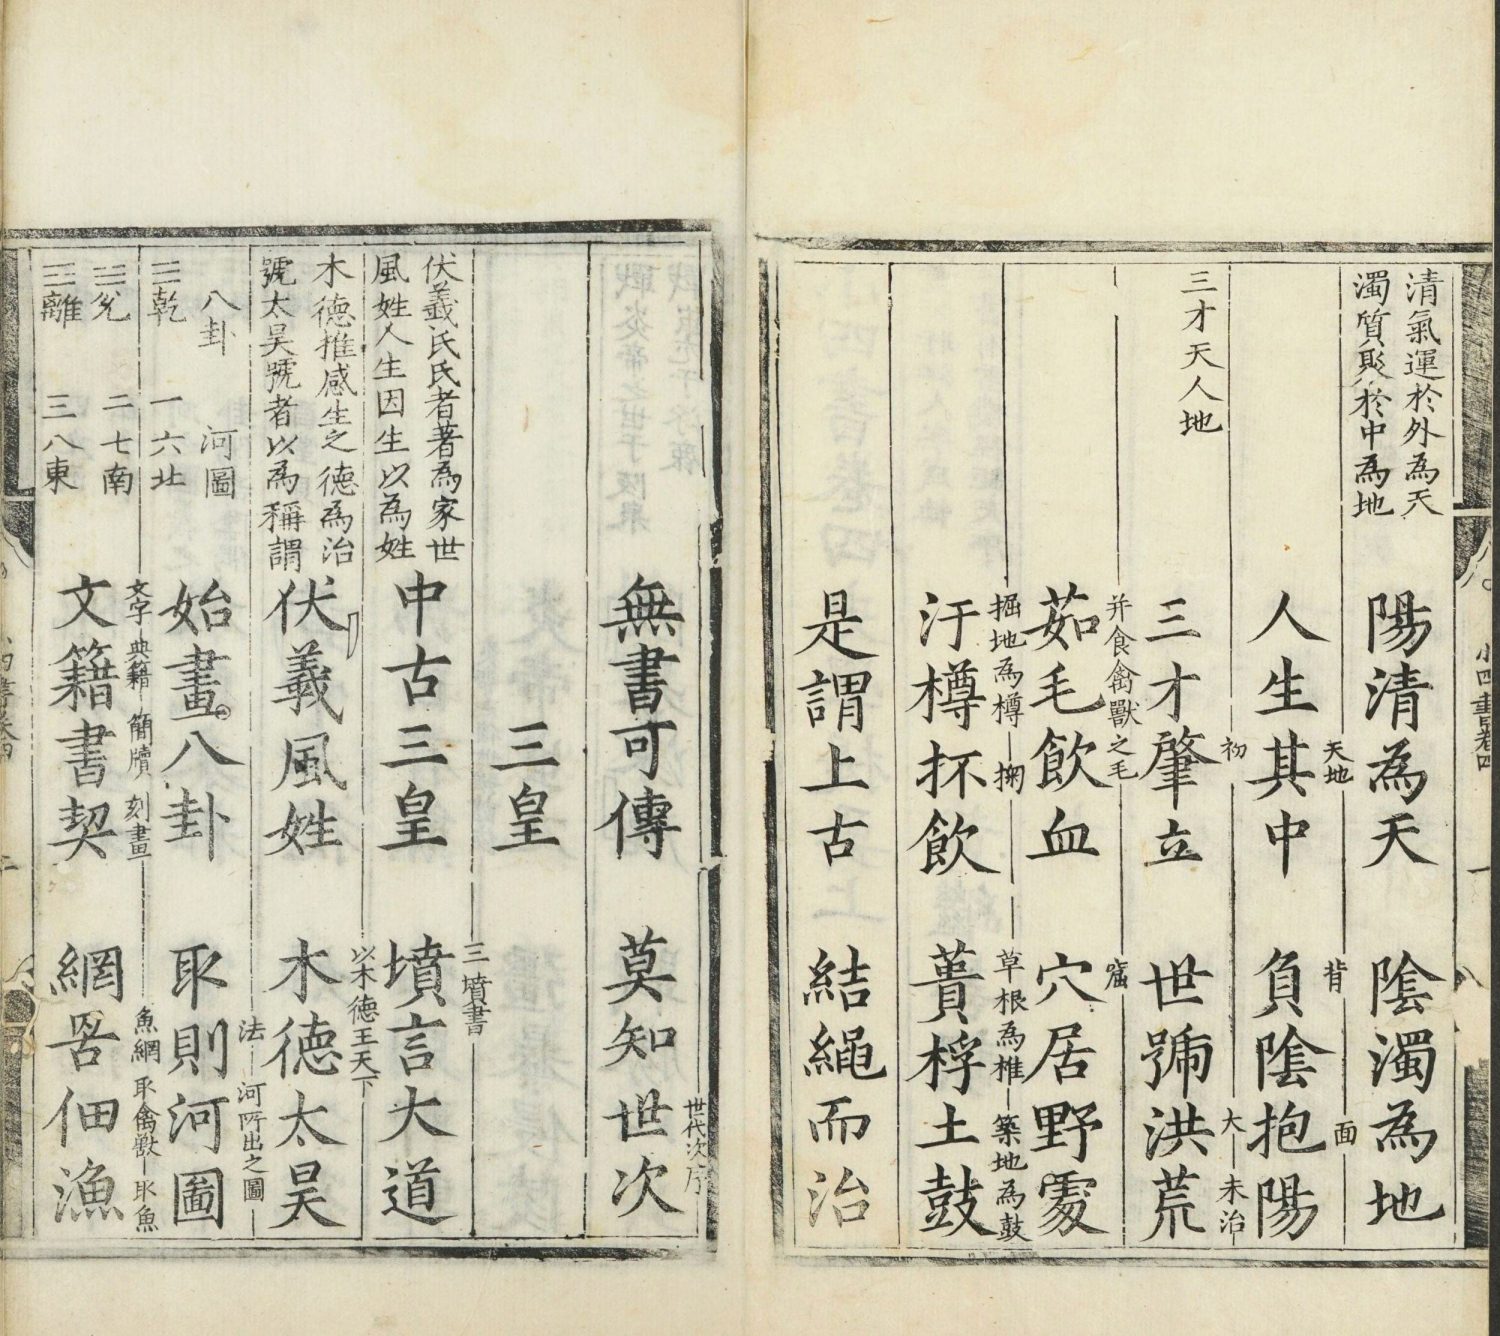 清氣運於外為天
濁質聚於中為地
陽清為天 陰濁為地
天地 背 面
人生其中 負陰抱陽
三才天人地
初 大 未治
三才肇立 世號洪荒
并食禽獸之毛 窟
茹毛飲血 穴居野處
掘地為樽 掬 草根為椎 築地為鼓
汙樽抔飲 蕢桴土鼓
是謂上古 結繩而治
小四書卷四
世代次序
無書可傳 莫知世次
三皇
三墳書
伏羲氏氏者著為家世
風姓人生因生以為姓
中古三皇 墳言大道
以木德王天下
木德推感生之德為治
號太昊號者以為稱謂
伏羲風姓 木德太昊
法 河所出之圖
八卦 河圖
☰乾 一六北
始畫八卦 取則河圖
文字 典籍 簡牘 刻畫 魚網 取禽獸 取魚
兌 二七南
離 三八東
文籍書契 網罟佃漁